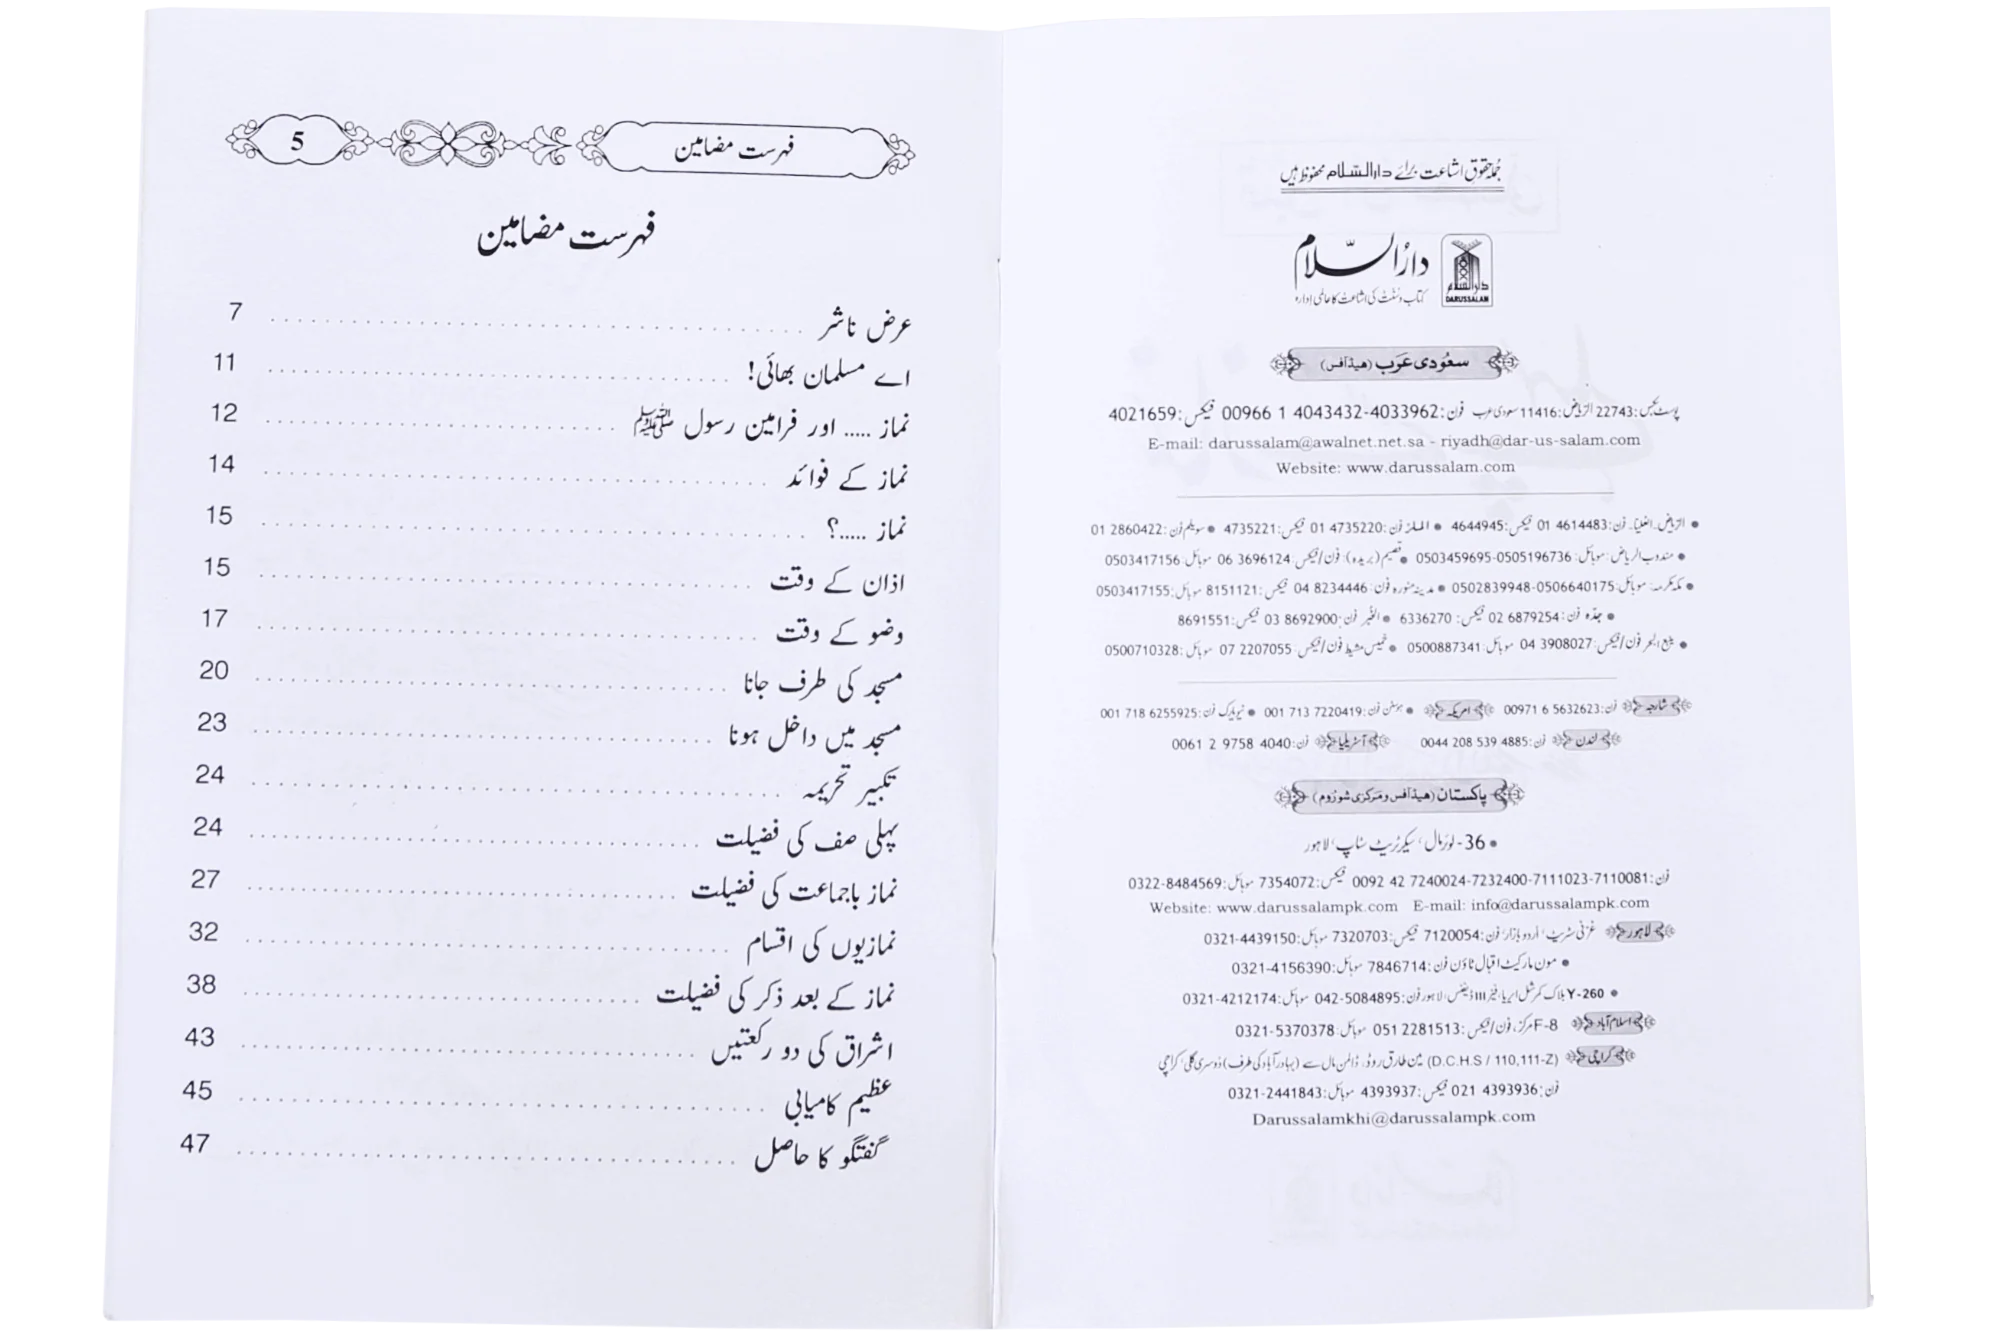 جملہ حقوق اشاعت برائے دارالسلام محفوظ ہیں
دارالسلام
کتاب و سنت کی اشاعت کا عالمی ادارہ
دارالسلام
DARUSSALAM
سعودی عرب (ھیڈآفس)
پوسٹ بکس:22743 الریاض:11416 سعودی عرب فون:00966 1 4043432-4033962 فیکس:4021659
E-mail: darussalam@awalnet.net.sa - riyadh@dar-us-salam.com
Website: www.darussalam.com
● الریاض۔العلیا۔ فون:01 4614483 فیکس:4644945 ● الملز فون:01 4735220 فیکس:4735221 ● سویلم فون:01 2860422
● مندوب الریاض: موبائل:0503459695-0505196736 ● قصیم (بریدہ): فون/فیکس:06 3696124 موبائل:0503417156
● مکہ مکرمہ: موبائل:0502839948-0506640175 ● مدینہ منورہ فون:04 8234446 فیکس:8151121 موبائل:0503417155
● جدہ فون:02 6879254 فیکس:6336270 ● الخبر فون:03 8692900 فیکس:8691551
● ینبع البحر فون/فیکس:04 3908027 موبائل:0500887341 ● خمیس مشیط فون/فیکس:07 2207055 موبائل:0500710328
شارجہ فون:00971 6 5632623 امریکہ ● ہوسٹن فون:001 713 7220419 ● نیویارک فون:001 718 6255925
لندن فون:0044 208 539 4885 آسٹریلیا فون:0061 2 9758 4040
پاکستان (ھیڈآفس و مرکزی شوروم)
● 36- لوئرمال، سیکرٹریٹ سٹاپ، لاہور
فون:0092 42 7240024-7232400-7111023-7110081 فیکس:7354072 موبائل:0322-8484569
Website: www.darussalampk.com E-mail: info@darussalampk.com
لاہور غزنی سٹریٹ، اردو بازار، فون:7120054 فیکس:7320703 موبائل:0321-4439150
● مون مارکیٹ اقبال ٹاؤن فون:7846714 موبائل:0321-4156390
● Y-260 بلاک کمرشل ایریا، فیز III ڈیفنس، لاہور فون:042-5084895 موبائل:0321-4212174
اسلام آباد F-8 مرکز، فون/فیکس:051 2281513 موبائل:0321-5370378
کراچی (D.C.H.S / 110,111-Z) مین طارق روڈ، ڈالمن مال سے (بہادر آباد کی طرف) دوسری گلی، کراچی
فون:021 4393936 فیکس:4393937 موبائل:0321-2441843
Darussalamkhi@darussalampk.com
فہرست مضامین 5
فہرست مضامین
عرض ناشر 7
اے مسلمان بھائی! 11
نماز ..... اور فرامین رسول ﷺ 12
نماز کے فوائد 14
نماز .....؟ 15
اذان کے وقت 15
وضو کے وقت 17
مسجد کی طرف جانا 20
مسجد میں داخل ہونا 23
تکبیر تحریمہ 24
پہلی صف کی فضیلت 24
نماز باجماعت کی فضیلت 27
نمازیوں کی اقسام 32
نماز کے بعد ذکر کی فضیلت 38
اشراق کی دو رکعتیں 43
عظیم کامیابی 45
گفتگو کا حاصل 47